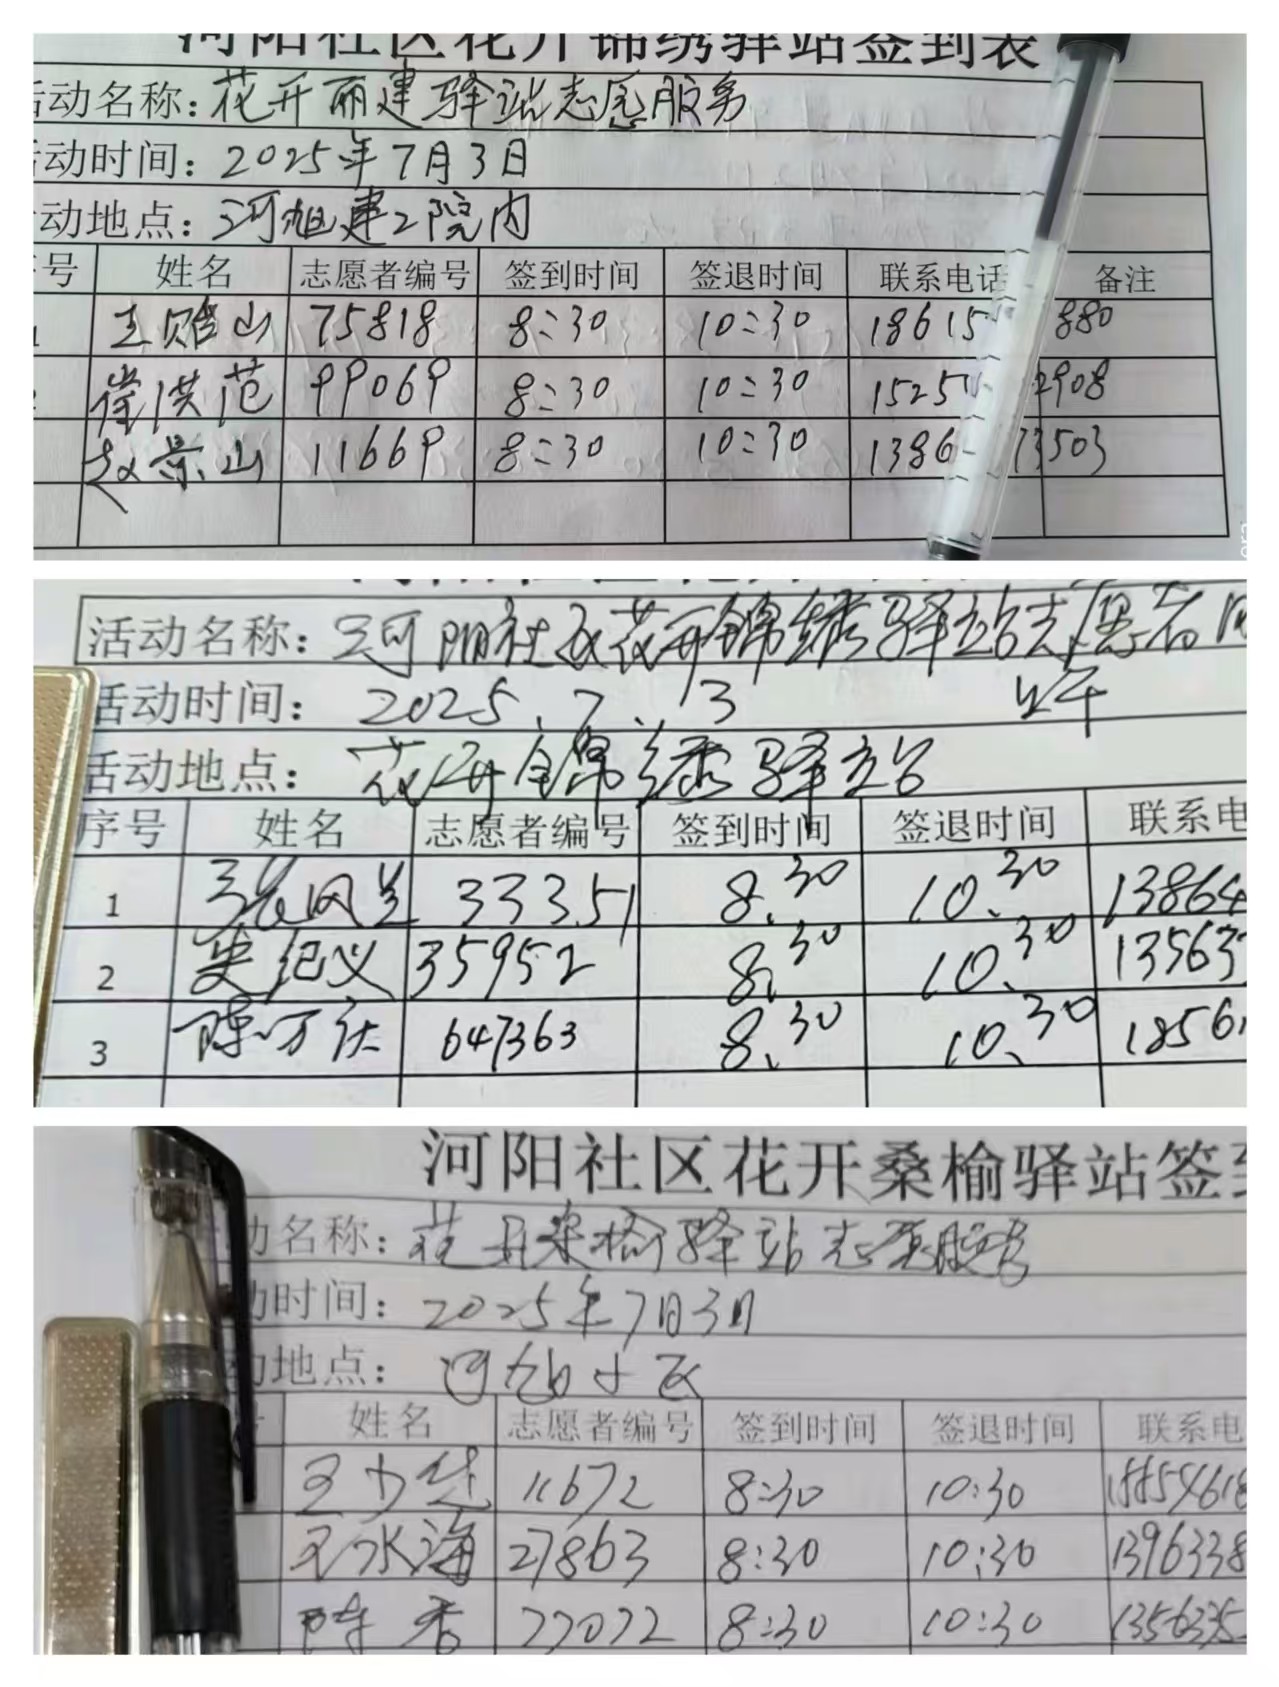 河阳社区花开锦绣驿站签到表
活动名称：花开丽建驿站志愿服务
活动时间：2025年7月3日
动地点：河旭建工院内
号 姓名 志愿者编号 签到时间 签退时间 联系电话 备注
1 王贻山 75818 8:30 10:30 18615 880
2 崔洪范 99069 8:30 10:30 1525 2908
赵景山 11669 8:30 10:30 1386 73503
活动名称：河阳社区花开锦绣驿站志愿者
活动时间：2025.7.3 上午
活动地点：花开锦绣驿站
序号 姓名 志愿者编号 签到时间 签退时间 联系电
1 33351 8.30 10.30 13864
2 吴纪义 35952 8.30 10.30 13563
3 陈万庆 647363 8.30 10.30 1856
河阳社区花开桑榆驿站签到
动名称：花开桑榆驿站志愿服务
动时间：2025年7月3日
动地点：河旭小区
姓名 志愿者编号 签到时间 签退时间 联系电
11672 8:30 10:30 18854618
王永海 27863 8:30 10:30 1396338
陈香 77072 8:30 10:30 1356335